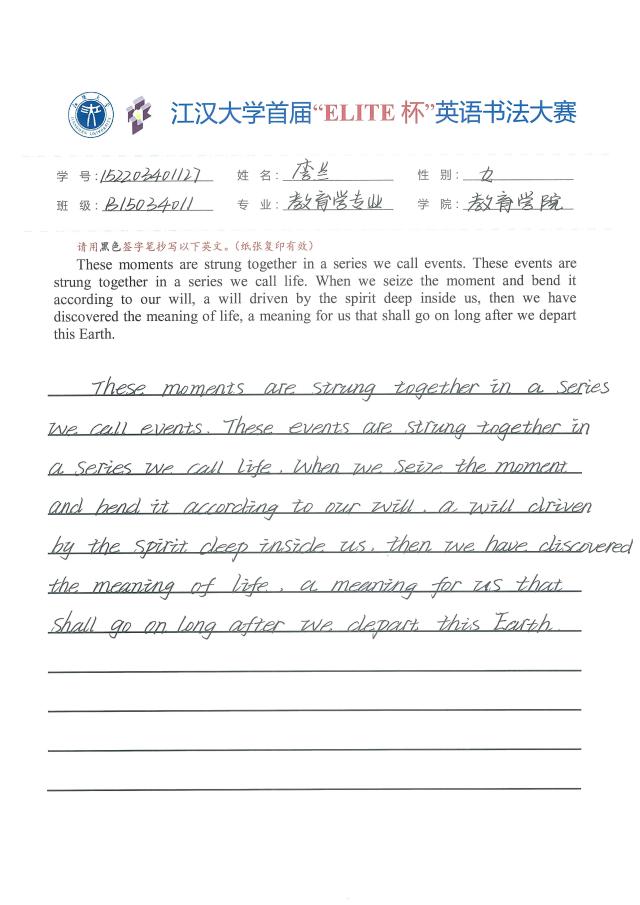 江汉大学首届“ELITE 杯”英语书法大赛
学 号: 152203401127 姓 名: 李兰 性 别: 女
班 级: B15034011 专 业: 教育学专业 学 院: 教育学院
请用黑色签字笔抄写以下英文。(纸张复印有效)
These moments are strung together in a series we call events. These events are
strung together in a series we call life. When we seize the moment and bend it
according to our will, a will driven by the spirit deep inside us, then we have
discovered the meaning of life, a meaning for us that shall go on long after we depart
this Earth.
These moments are strung together in a series
we call events. These events are strung together in
a series we call life. When we seize the moment
and bend it according to our will, a will driven
by the spirit deep inside us, then we have discovered
the meaning of life, a meaning for us that
shall go on long after we depart this Earth.